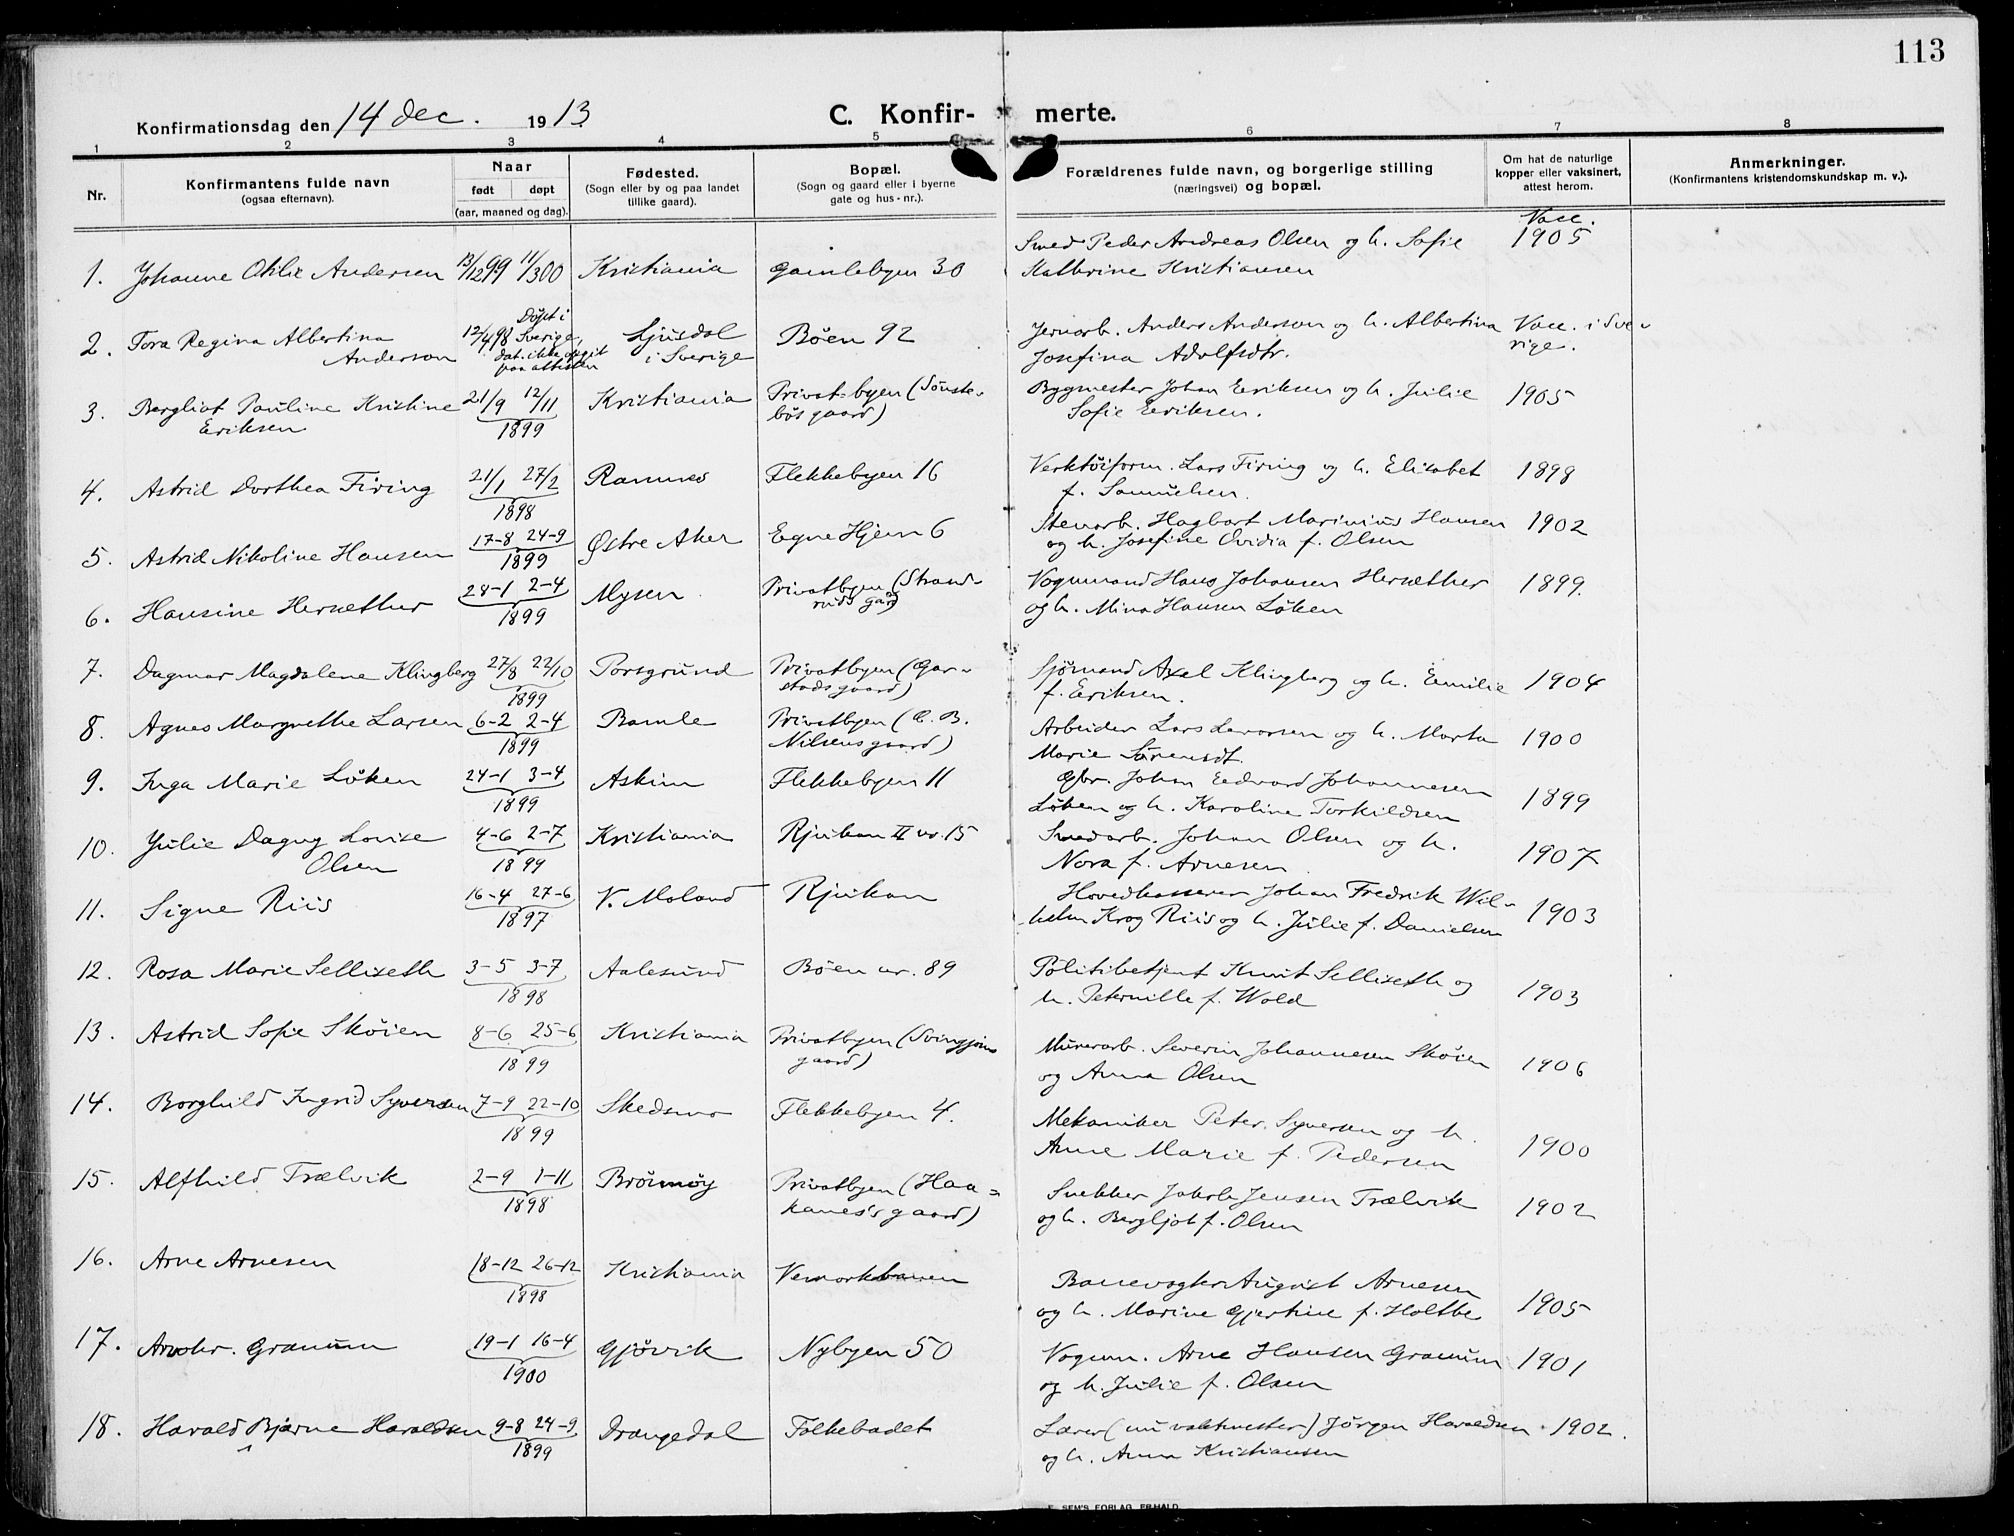 113
Konfirmationsdag den 14 dec. 1913
C. Konfir- merte.
1 2 3 4 5 6 7 8
Nr.
Konfirmantens fulde navn
(ogsaa efternavn).
Naar
født døpt
(aar, maaned og dag).
Fødested.
(Sogn eller by og paa landet
tillike gaard).
Bopæl.
(Sogn og gaard eller i byerne
gate og hus-nr.).
Forældrenes fulde navn, og borgerlige stilling
(næringsvei) og bopæl.
Om hat de naturlige
kopper eller vaksinert,
attest herom.
Anmerkninger.
(Konfirmantens kristendomskundskap m. v.).
1. Johanne Othlie Andersen 13/12 99 11/3 00 Kristiania Gamlebyen 30 Smed Peder Andreas Olsen og h. Sofie Vacc. 1905
Kathrine Kristiansen
2. Tora Regina Albertina 12/4 98 Døpt i Sverige, Ljusdal Bøen 92 Jernarb. Anders Anderson og h. Albertina Vacc. i Sve-
Anderson dat. ikke opgit paa attesten i Sverige Josefina Adolfsdtr. rige.
3. Bergliot Pauline Kristine 21/9 12/11 Kristiania Privatbyen (Sønste- Bygmester Johan Eriksen og h. Julie 1905
Eriksen 1899 bøs gaard) Sofie Eriksen.
4. Astrid Dorthea Firing 21/1 27/2 Ramnes Flekkebyen 16 Verktøiform. Lars Firing og h. Elisabet 1898
1898 f. Samuelsen.
5. Astrid Nikoline Hansen 17-8 24-9 Østre Aker Egne Hjem 6 Stenarb. Hagbart Marinius Hansen 1902
1899 og h. Josefine Ovidia f. Olsen
6. Hansine Hersæther 28-1 2-4 Mysen Privatbyen (Strand- Vognmand Hans Johansen Hersæther 1899.
1899 ruds gård) og h. Mina Hansen Løken
7. Dagmar Magdalene Klingberg 27/8 22/10 Porsgrund Privatbyen (Gar- Sjømand Axel Klingberg og h. Emilie 1904
1899 stads gaard) f. Eriksen.
8. Agnes Margrethe Larsen 6-2 2-4 Bamle Privatbyen (C. B. Arbeider Lars Larssen og h. Marta 1900
1899 Nilsens gaard) Marie Sørensdt.
9. Inga Marie Løken 24-1 3-4 Askim Flekkebyen 11 Gbr. Johan Edvard Johannesen 1899
1899 Løken og h. Karoline Torkildsen
10. Julie Dagny Lovise 4-6 2-7 Kristiania Rjukan II nr. 15 Smedarb. Johan Olsen og h. 1907
Olsen 1899 Nora f. Arnesen
11. Signe Riis 16-4 27-6 V. Moland Rjukan Hovedkasserer Johan Fredrik Wil- 1903
1897 helm Krog Riis og h. Julie f. Danielsen
12. Rosa Marie Selliseth 3-5 3-7 Aalesund Bøen nr. 89 Politibetjent Knut Selliseth og 1903
1898 h. Peternille f. Wold
13. Astrid Sofie Skøien 8-6 25-6 Kristiania Privatbyen (Svingjoms Murerarb. Severin Johannesen Skøien 1906
1899 gaard) og Anna Olsen
14. Borghild Ingrid Syversen 7-9 22-10 Skedsmo Flekkebyen 4. Mekaniker Peter Syversen og h. 1900
1899 Anne Marie f. Pedersen
15. Alfhild Trælvik 2-9 1-11 Brönnöy Privatbyen (Haa- Snekker Jakob Jensen Trælvik 1902
1898 kanes's gaard) og h. Bergljot f. Olsen
16. Arne Arnesen 18-12 26-12 Kristiania Vemorkbanen Banevogter August Arnesen 1905
1898 og h. Marine Gjertine f. Holtbe
17. Granum 19-1 16-4 Gjövik Nybyen 50 Vognm. Arne Hansen Granum 1901
1900 og h. Julie f. Olsen
18. Harald Bjarne Haraldsen 9-8 24-9 Drangedal Folkebadet Lærer (nu vaktmester) Jörgen Haraldsen 1902.
1899 og h. Anna Kristiansen
E. SEM'S FORLAG, FR.HALD